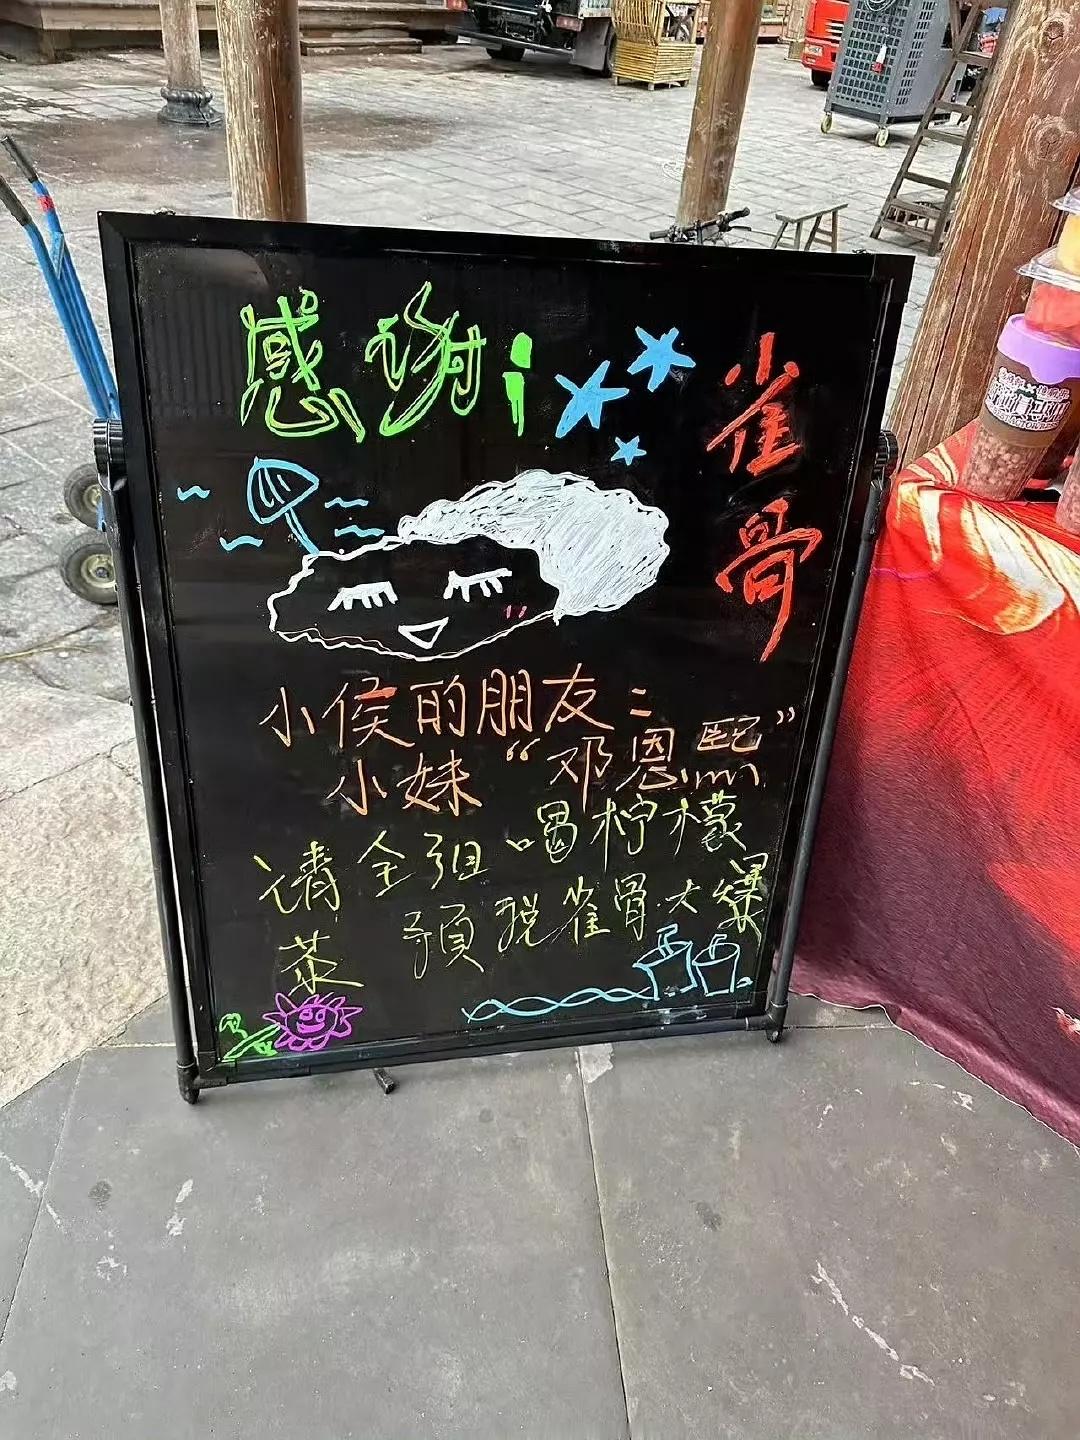 感谢!
雀骨
小侯的朋友:
小妹“邓恩熙”
请全组喝柠檬
茶 预祝雀骨大爆